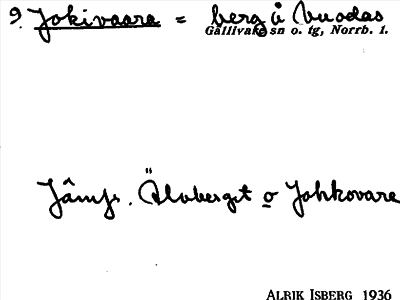 9. Jokivaara = berg å Vuodas
Gällivare sn o. tg, Norrb. 1.
Jämfr. Älvberget o Jokkovare
ALRIK ISBERG 1936